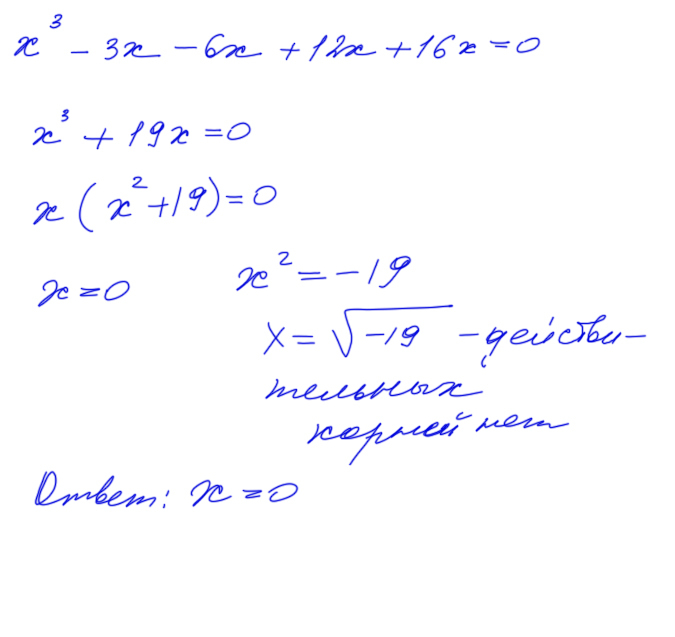 x³ - 3x - 6x + 12x + 16x = 0
x³ + 19x = 0
x (x² + 19) = 0
x = 0 x² = -19
x = √-19 - действи-
тельных
корней нет
Ответ: x = 0